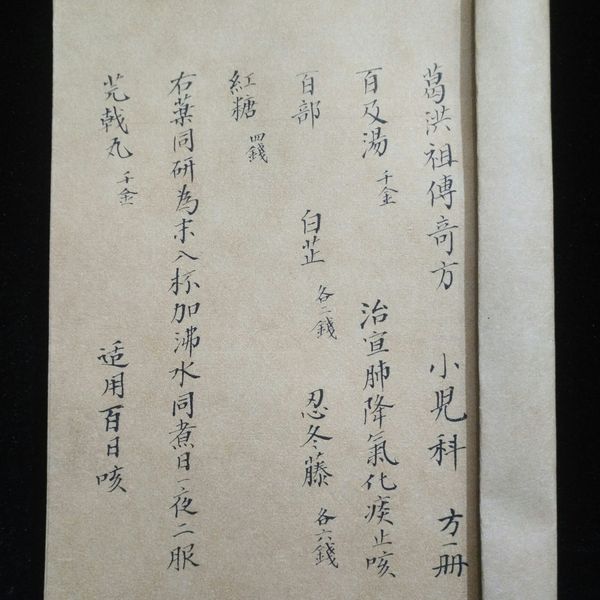 葛洪祖傳奇方 小児科 方一册
百及湯 千金 治宣肺降氣化痰止咳
百部 白芷 各二錢 忍冬藤 各六錢
紅糖 四錢
右藥同研為末入杯加沸水同煮日一夜二服
芫戟丸 千金 适用百日咳